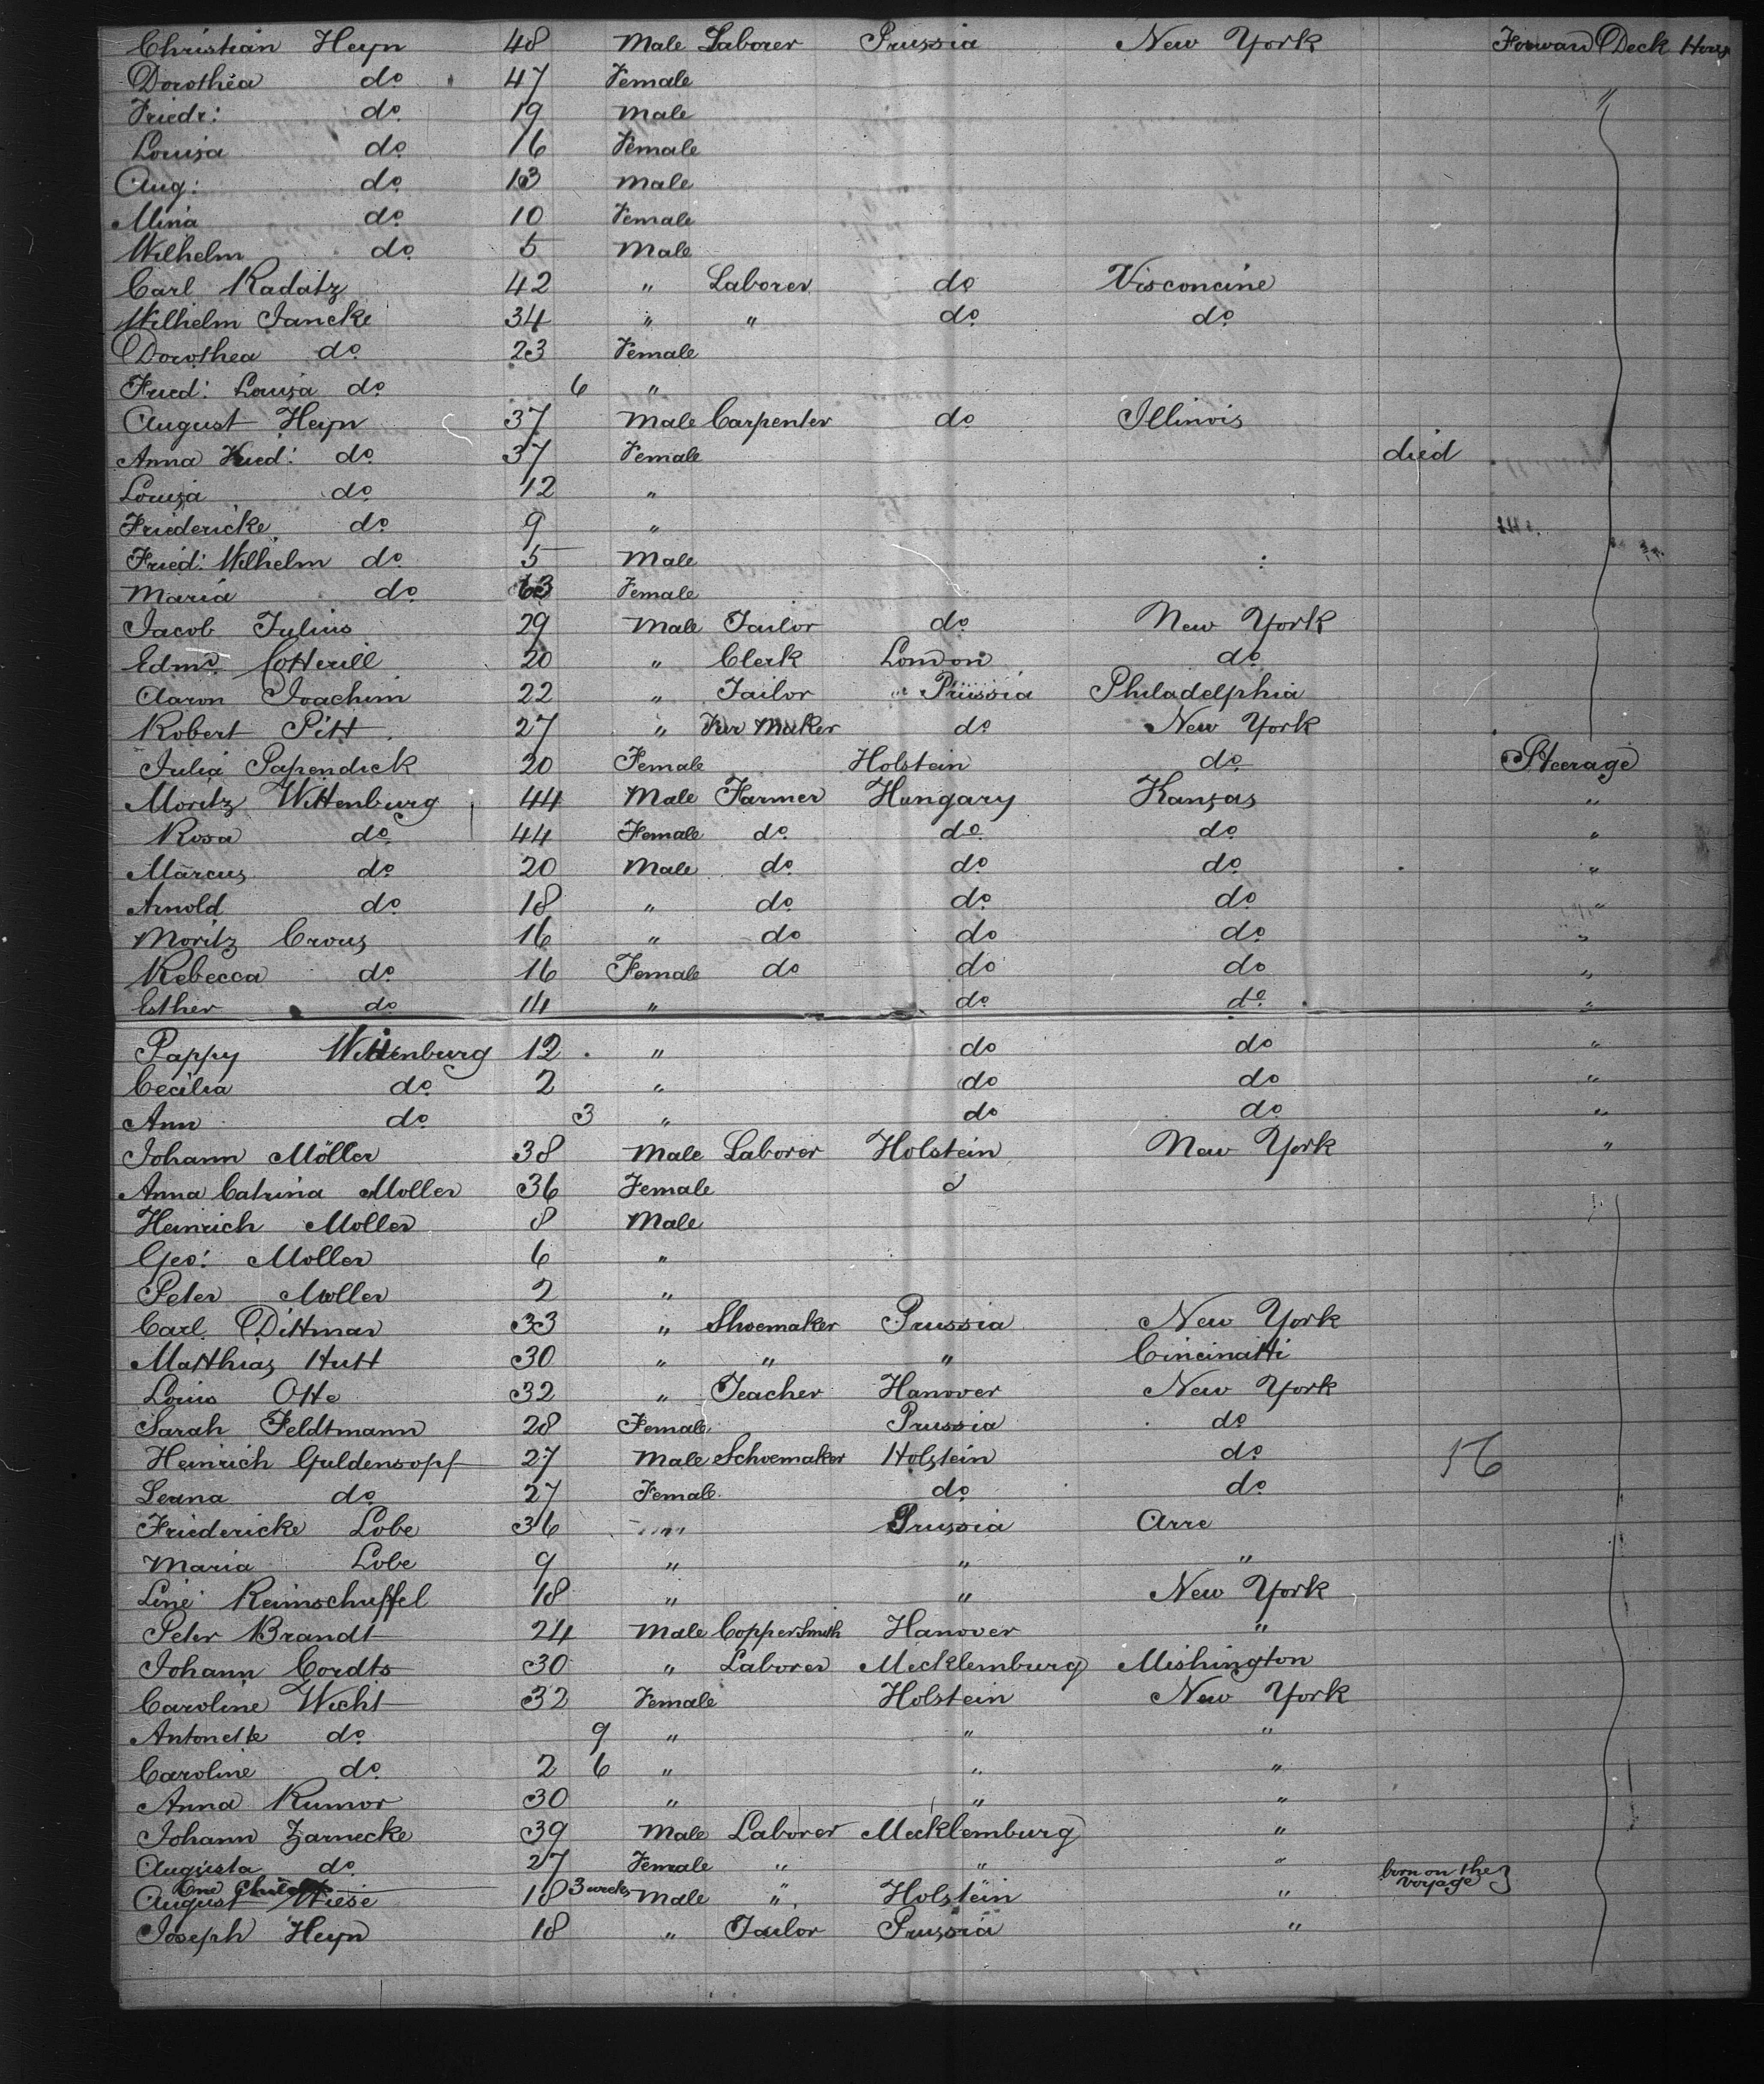 Christian Heyn 48 Male Laborer Prussia New York Forward Deck House
Dorothea do 47 Female "
Friedr: do 19 Male
Louisa do 16 Female
Aug: do 13 Male
Mina do 10 Female
Wilhelm do 5 Male
Carl Radatz 42 " Laborer do Visconcine
Wilhelm Jancke 34 " " do do
Dorothea do 23 Female
Fried: Louisa do 6 "
August Heyn 37 Male Carpenter do Illinois
Anna Fried: do 37 Female died
Louisa do 12 "
Friedericke do 9 "
Fried: Wilhelm do 5 Male
Maria do 63 Female
Jacob Julius 29 Male Tailor do New York
Edmd Cotterill 20 " Clerk London do
Aaron Joachim 22 " Tailor " Prussia Philadelphia
Robert Pitt 27 " Fur Maker do New York
Julia Papendick 20 Female Holstein do Steerage
Moritz Wittenburg 44 Male Farmer Hungary Kansas "
Rosa do 44 Female do do do "
Marcus do 20 Male do do do "
Arnold do 18 " do do do "
Moritz Crous 16 " do do do "
Rebecca do 16 Female do do do "
Esther do 14 " do do "
Pappy Wittenburg 12 " do do "
Cecilia do 2 " do do "
Ann do 3 " do do "
Johann Möller 38 Male Laborer Holstein New York "
Anna Catrina Moller 36 Female d
Heinrich Moller 8 Male
Geo: Moller 6 "
Peter Moller 2 "
Carl Dittmar 33 " Shoemaker Prussia New York
Matthias Hutt 30 " " " Cincinatti
Louis Otte 32 " Teacher Hanover New York
Sarah Feldtmann 28 Female Prussia do
Heinrich Guldensopf 27 Male Schoemaker Holstein do 56
Leana do 27 Female do do
Friedericke Lobe 36 " Prussia Arre
Maria Lobe 9 " " "
Line Reimschuffel 18 " " New York
Peter Brandt 24 Male CopperSmith Hanover "
Johann Cordts 30 " Laborer Mecklemburg Mishington
Caroline Wicht 32 Female Holstein New York
Antonette do 9 " " "
Caroline do 2 6 " " "
Anna Rumor 30 " " "
Johann Zarnecke 39 Male Laborer Mecklemburg "
Augusta do 27 Female " " "
One Child 3 weeks born on the voyage
August Wiese 18 Male " Holstein "
Joseph Heyn 18 " Tailor Prussia "